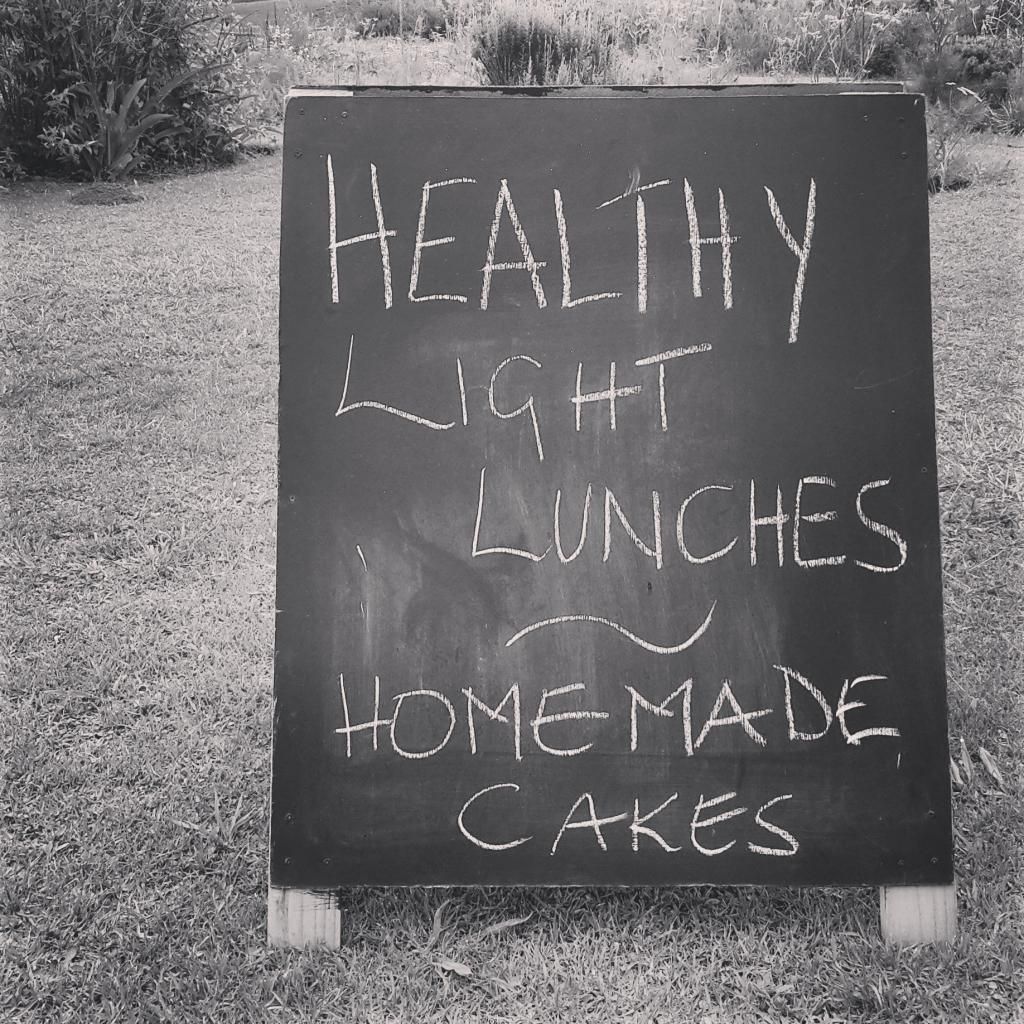 HEALTHY
LIGHT
LUNCHES
~
HOMEMADE
CAKES